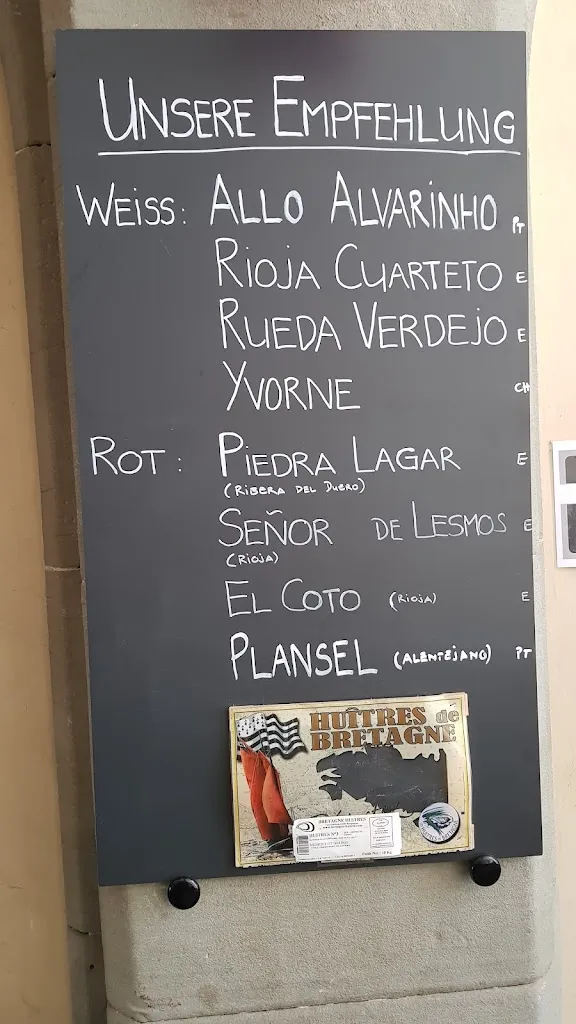 UNSERE EMPFEHLUNG
WEISS: ALLO ALVARINHO PT
RIOJA CUARTETO E
RUEDA VERDEJO E
YVORNE CH
ROT: PIEDRA LAGAR E
(RIBERA DEL DUERO)
SEÑOR DE LESMOS E
(RIOJA)
EL COTO (RIOJA) E
PLANSEL (ALENTEJANO) PT
HUÎTRES de
BRETAGNE
BRETAGNE HUITRES
HUITRES N°3